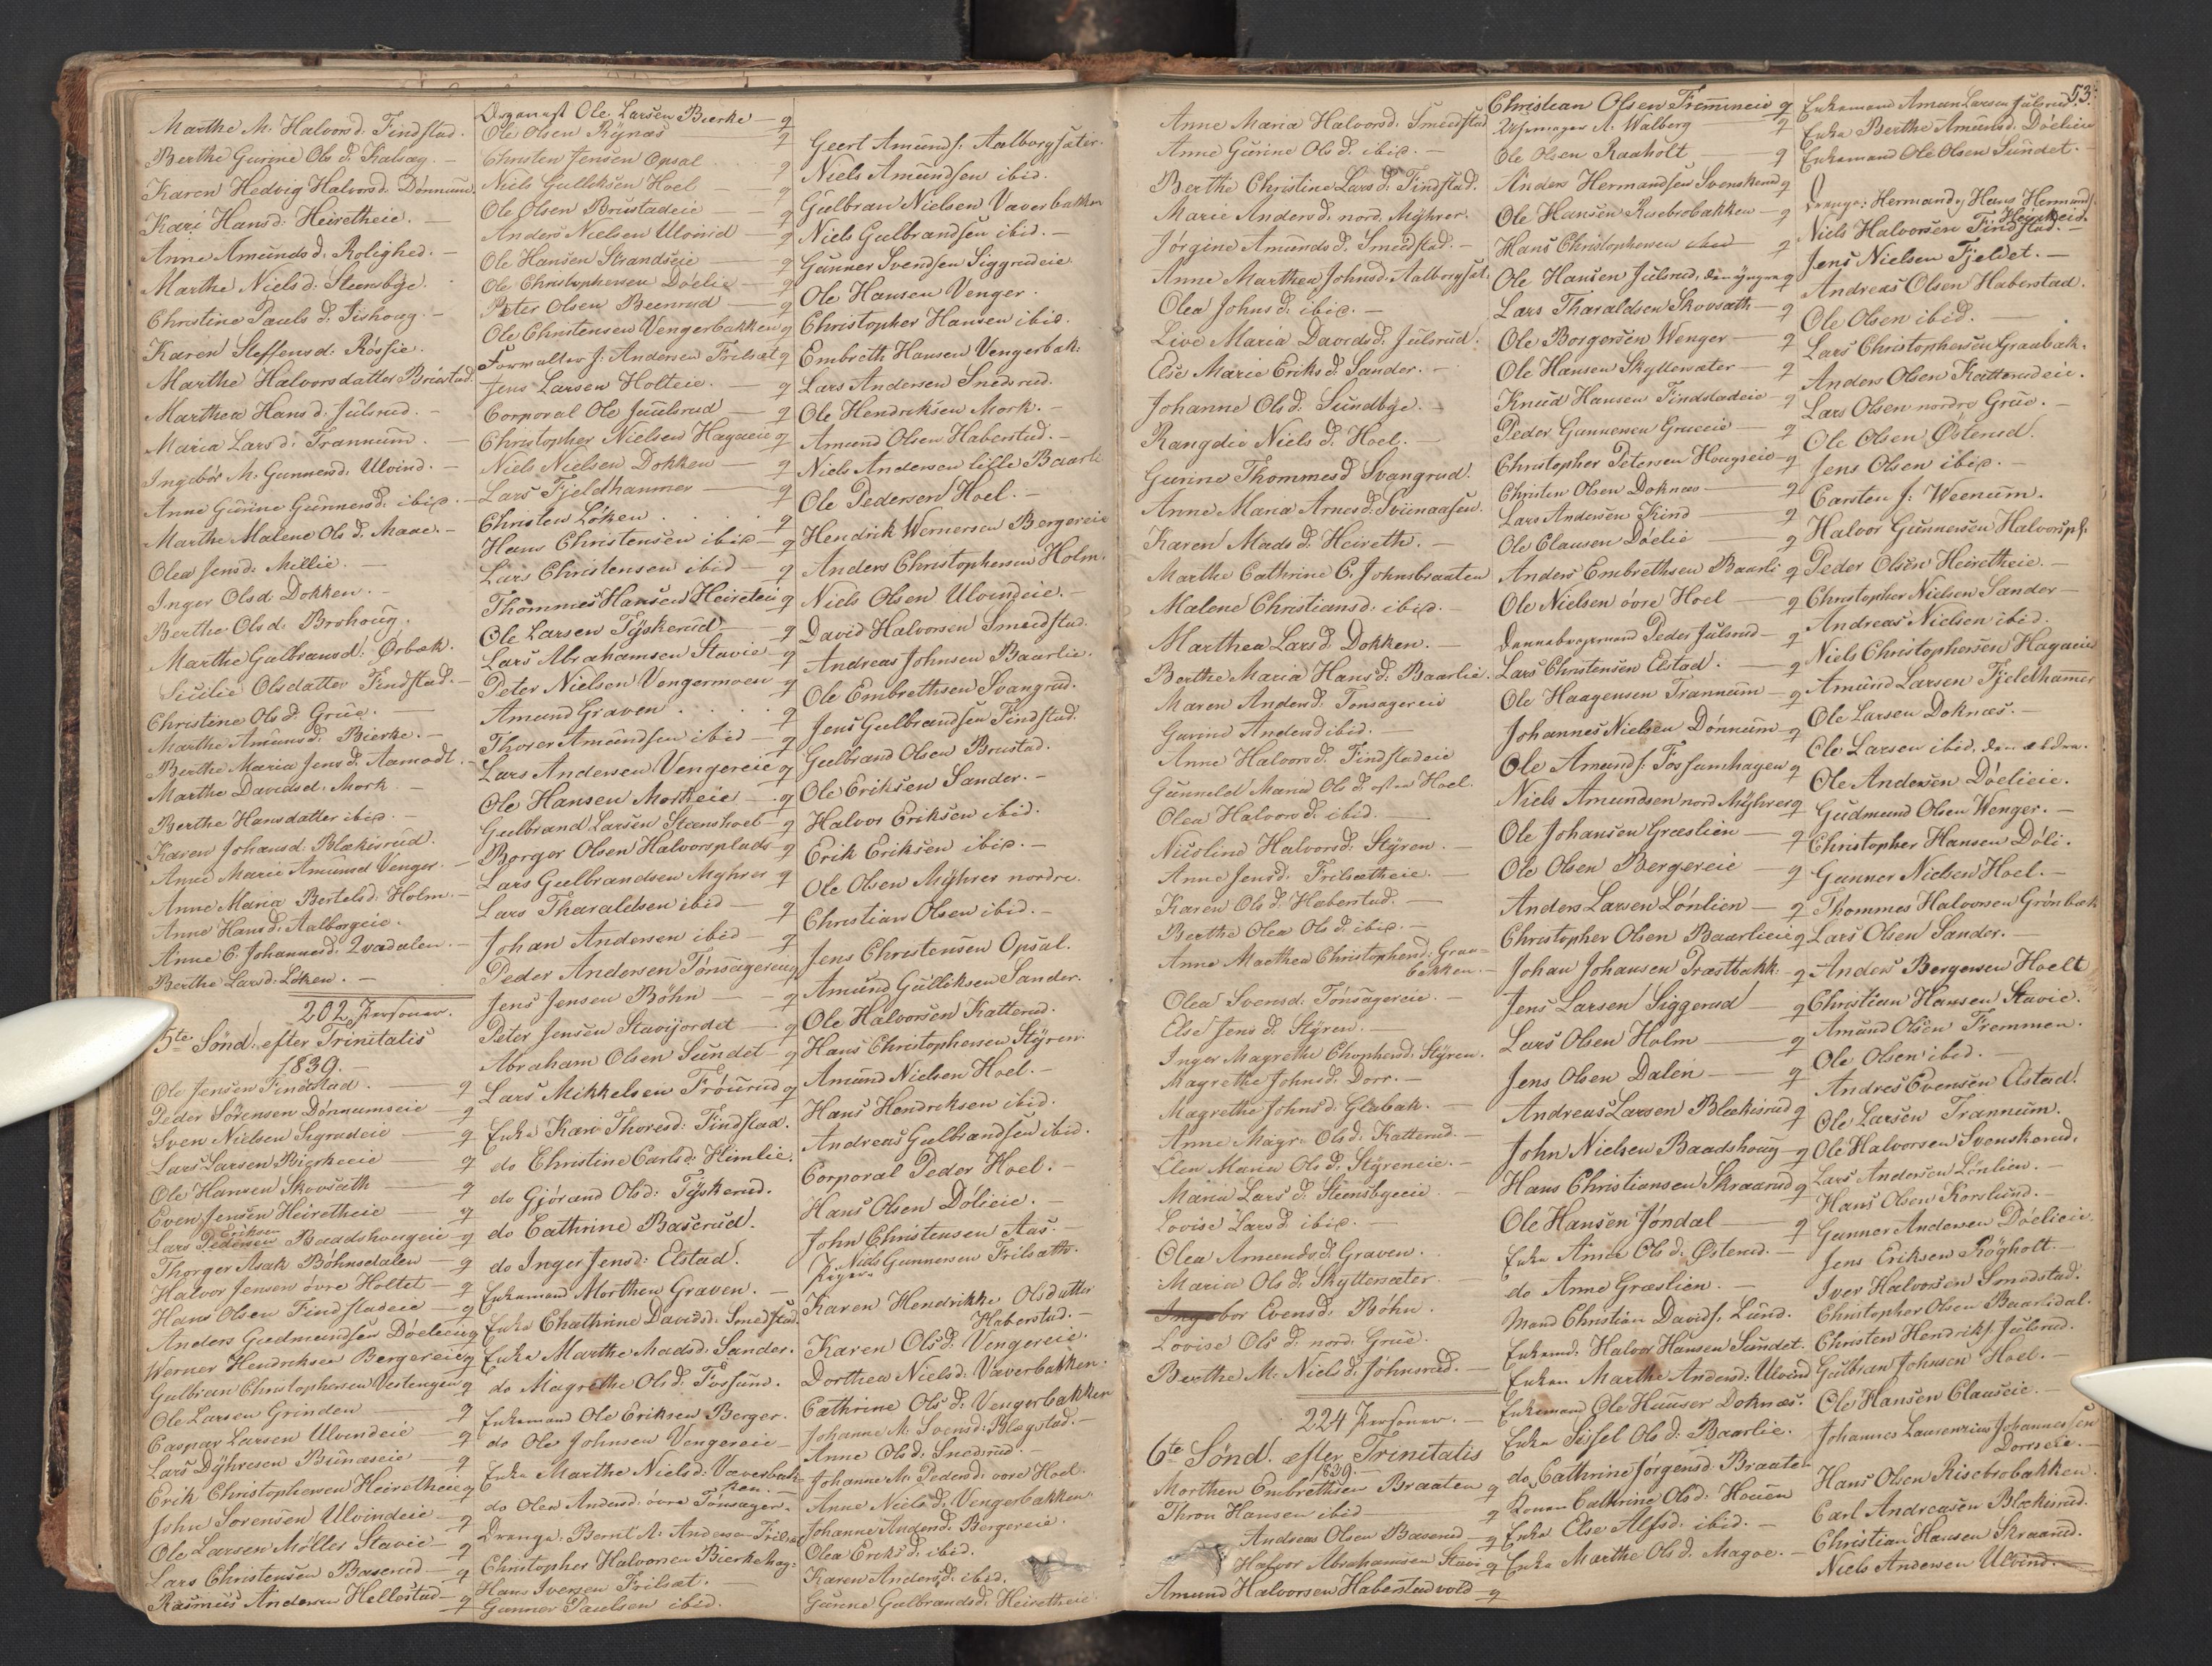 Marthe M. Halvorsd. Findstad.
Berthe Gurine Ols d. Kalsag.
Karen Hedvig Halvorsd. Dønnum.
Kari Hansd: Heiretheie.
Anne Amunds d. Rolighed.
Marthe Niels d: Steensbye.
Christine Pauls d.
Karen Steffens d:
Marthe Halvorsdatter Brustad.
Marthea Hans d. Julsrud.
Maria Lars d: Trannum.
Ingebor M. Gunnersd. Ulvind.
Anne Gurine Gunnersd. ibid.
Marthe Malene Ols d.
Olea Jensd. Millie.
Inger Olsd. Dokken.
Berthe Olsd. Brohoug.
Marthe Gulbransd: Ørbæk.
Sicilie Olsdatter Findstad.
Christine Ols d. Grue.
Marthe Amunsd. Bierke.
Berthe Maria Jens d. Aamodt.
Marthe Davidsd. Mork
Berthe Hansdatter ibid.
Karen Johansd. Blækisrud.
Anne Marie Amunsd Venger.
Anne Maria Bertelsd. Holm.
Anne Hansd. Aalborgeie.
Anne C. Johannesd. Qvædalen.
Berthe Larsd. Løken.
202 Personer.
5te Sønd. efter Trinitatis
1839.
Ole Jensen Findstad. q
Peder Sørensen Dønnumseie q
Sven Nielsen Segrudeie q
Lars Larsen Bierkeeie q
Ole Hansen Skovsæth q
Even Jensen Heiretheie q
Eriksen
Lars Pedersen Baadshougeie q
Thorger Asak Bøhnsdalen q
Halvor Jensen øvre Holtet q
Hans Olsen Findstadeie q
Anders Gudmundsen Døelieie q
Werner Hendriksen Bergereie q
Gulbran Christophersen Vestengen q
Ole Larsen Grinden q
Caspar Larsen Ulvindeie q
Lars Dyhresen Bunæseie q
Erik Christophersen Heiretheie q
John Sørensen Ulvindeie q
Ole Larsen Møller Stavie q
Lars Christensen Baserud q
Rasmus Andersen Hellestad q
Organist Ole Larsen Bierke q
Ole Olsen Rynæs q
Christen Jensen Opsal q
Niels Gulliksen Hoel q
Ole Olsen Brustadeie q
Anders Nielsen Ulvind q
Ole Hansen Strandseie q
Ole Christophersen Døelie q
Peter Olsen Beenrud q
Ole Christensen Vengerbakken q
Forvalter J. Andersen Frilsæt q
Jens Larsen Holteie. q
Corporal Ole Juulsrud q
Christopher Nielsen Hagaeie q
Niels Nielsen Dokken q
Lars Fjeldhammer q
Christen Løken q
Hans Christensen ibid q
Lars Christensen ibid q
Thommes Hansen Heireteie q
Ole Larsen Tyskerud q
Lars Abrahamsen Stavie q
Peter Nielsen Vengermoen q
Amund Graven q
Thorer Amundsen ibid q
Lars Andersen Vengereie q
Ole Hansen Morkeie q
Gulbrand Larsen Steenshoel q
Borger Olsen Halvorsplads q
Lars Gulbrandsen Myhrer q
Lars Tharaldsen ibid q
Johan Andersen ibid q
Peder Andersen Tønsagereie q
Jens Jensen Bøhn q
Peter Jensen Stavijordet q
Abraham Olsen Sundet q
Lars Mikkelsen Frøurud q
Enke Kari Thoresd: Findstad.
do Christine Carlsd: Himlie.
do Gjørand Olsd: Tyskerud.
do Cathrine Baserud.
do Inger Jensd: Elstad.
Enkemand Morthen Graven.
Enke Chathrine Davidsd. Smedstad
Enke Marthe Madsd. Sander.
do Magrethe Olsd: Fossum.
Enkemand Ole Eriksen Berger.
do Ole Johnsen Vengereie
Enke Marthe Nielsd: Væverbak-
ken.
do Olea Andersd. øvre Tønsager.
Drenge: Bernt A. Andersen Frilsæt
Christopher Halvorsen Bierkehag:
Hans Iversen Frilsæt.
Gunner Paulsen ibid.
Geert Amunds: Aalborgsæter.
Niels Amundsen ibid.
Gulbran Nielsen Væverbakken
Niels Gulbrandsen ibid.
Gunner Svendsen Siggerudeie
Ole Hansen Venger.
Christopher Hansen ibid.
Embreth Hansen Vengerbak:
Lars Andersen Snedsrud.
Ole Hendriksen Mork.
Amund Olsen Haberstad.
Niels Andersen lille Baarli
Ole Pedersen Hoel.
Hendrik Wernersen Bergereie
Anders Christophersen Holm.
Niels Olsen Ulvindeie.
David Halvorsen Smedstad.
Andreas Johnsen Baarlie.
Ole Embrethsen Svangrud.
Jens Gulbrandsen Findstad.
Gulbrand Olsen Brustad.
Ole Eriksen Sander.
Halvor Eriksen ibid.
Erik Eriksen ibid.
Ole Olsen Myhrer nordre.
Christian Olsen ibid.
Jens Christensen Opsal.
Amund Gulliksen Sander.
Ole Halvorsen Katterud.
Hans Christophersen Styren.
Amund Nielsen Hoel.
Hans Hendriksen ibid.
Andreas Gulbrandsen ibid.
Corporal Peder Hoel.
Hans Olsen Dolieie.
John Christensen Aas.
Niels Gunnersen Frilsæth.
Piger:
Karen Hendrikke Olsdatter
Haberstad.
Karen Olsd. Vengereie.
Dorthea Nielsd. Væverbakken.
Cathrine Ols d: Vengerbakken
Johanne M. Svensd: Blegstad.
Anne Olsd: Snedsrud.
Johanne M. Pedersd. øvre Hoel.
Anne Niels d: Vengerbakken
Johanne Andersd. Bergereie.
Olea Eriks d. ibid.
Karen Anders d. ibid.
Gurine Gulbrandsd. Heiretheie.
53.
Anne Maria Halvorsd. Smedstad
Anne Gurine Ols d. ibid.
Berthe Christine Lars d. Findstad.
Marie Anders d. nord. Myhrer.
Jørgine Amunds d. Smedstad.
Anne Marthea Johnsd. Aalborgsæt.
Olea Johns d. ibid.
Live Maria Davids d. Julsrud.
Else Marie Eriks d. Sander.
Johanne Ols d. Sundbye.
Rangdie Niels d. Hoel.
Gurine Thommes d Svangrud.
Anne Maria Arnes d. Svinaasen.
Karen Mads d. Heireth.
Marthe Cathrine C. Johnsbraaten
Malene Christians d: ibid.
Marthea Lars d. Dokken.
Berthe Maria Hans d. Baarlie.
Maren Anders d. Tonsagereie
Gurine Anders d ibid.
Anne Halvors d. Findstadeie
Gunneld Maria Ols d. østen Hoel.
Olea Halvors d. ibid.
Nicoline Halvorsd. Styren.
Anne Jensd. Frilsætheie.
Karen Ols d. Haberstad.
Berthe Olea Ols d. ibid.
Anne Marthea Christophersd: Graa-
bakken.
Olea Svensd: Tønsagereie.
Else Jens d. Styren.
Inger Magrethe Chophersd. Styren.
Magrethe Johns d. Dorr.
Magrethe Johns d. Glabak.
Anne Magr. Ols d. Katterud.
Elen Maria Ols d. Styreneie.
Maria Lars d. Steensbyeeie
Lovise Lars d. ibid.
Olea Amunds d. Graven.
Maria Ols d. Skyttersæter.
Ingebor Evens d. Bøhn.
Lovise Ols d. nord. Grue.
Berthe M. Niels d. Johnsrud.
224 Personer.
6te Sønd. efter Trinitatis
1839.
Morthen Embrethsen Braaten q
Thron Hansen ibid q
Andreas Olsen Baserud q
Halvor Abrahamsen Stavi q
Amund Halvorsen Haberstadvold q
Christian Olsen Fremmeie q
A. Walberg q
Ole Olsen Raaholt q
Anders Hermandsen Svenskerud q
Ole Hansen Risebrobakken q
Hans Christophersen ibid q
Ole Hansen Julsrud, den yngre q
Lars Tharaldsen Skovsæth q
Ole Borgersen Wenger q
Ole Hansen Skyttersæter q
Knud Hansen Findstadeie q
Peder Gunnersen Grueeie q
Christopher Petersen Hougseie q
Christen Olsen Doknæs q
Lars Andersen Kind q
Ole Clausen Døelie q
Anders Embrethsen Baarli q
Ole Nielsen øvre Hoel q
Dannebrogsmand Peder Julsrud q
Lars Christensen Elstad. q
Ole Haagensen Trannum q
Johannes Nielsen Dønnum q
Ole Amunds. Fossumhagen q
Niels Amundsen nord Myhrer q
Ole Johansen Græslien q
Ole Olsen Bergereie q
Anders Larsen Lønlien q
Christopher Olsen Baarlieie q
Johan Johansen Præstbakk: q
Jens Larsen Siggerud q
Lars Olsen Holm q
Jens Olsen Dalen q
Andreas Larsen Blækisrud q
John Nielsen Baadshoug q
Hans Christiansen Skraarud q
Ole Hansen Jøndal q
Enke Anne Ols d. Østerud.
do Anne Græslien.
Mand Christian Davids. Lund.
Enkemd. Halvor Hansen Sundet.
Enken Marthe Andersd. Ulvind
Enkemand Ole Hansen Doknæs.
Enke Sissel Ols d. Baarlie.
do Cathrine Jørgensd. Braaten
Konen Cathrine Ols d. Houen
Enke Else Alfsd. ibid.
Enke Marthe Ols d. Magoe.
Enkemand Amun Larsen Julsrud
Enke Berthe Amunsd. Døelien
Enkemand Ole Olsen Sundet.
Drenge: Hermand og Hans Hermands.
Niels Halvorsen Findstad.
Jens Nielsen Fjeldet.
Andreas Olsen Haberstad.
Ole Olsen ibid.
Lars Christophersen Graabak.
Anders Olsen Katterudeie.
Lars Olsen nordre Grue.
Ole Olsen Østerud.
Jens Olsen ibid.
Carsten J: Weenum.
Halvor Gunnersen Halvorspl.
Peder Olsen Heiretheie.
Christopher Nielsen Sander
Andreas Nielsen ibid.
Niels Christophersen Hagaeie
Amund Larsen Fjeldhammer
Ole Larsen Doknæs.
Ole Larsen ibid. den ældre.
Ole Andersen Døelieie.
Gudmund Olsen Wenger.
Christopher Hansen Døli.
Gunner Nielsen Hoel.
Thommes Halvorsen Grønbæk
Lars Olsen Sander.
Anders Borgersen Hoelt
Christian Hansen Stavie.
Amund Olsen Fremmen.
Ole Olsen ibid.
Andres Evensen Elstad.
Ole Larsen Trannum.
Ole Halvorsen Svenskerud.
Lars Andersen Lønlien.
Hans Olsen Korslund.
Gunner Andersen Døelieie.
Jens Eriksen Røgholt.
Iver Halvorsen Smedstad.
Christopher Olsen Baarlidal.
Christen Hendriks. Julsrud.
Gulbran Johnsen Hoel.
Ole Hansen Clauseie.
Johannes Laurenzius Johannessen
Dorrseie.
Hans Olsen Risebrobakken.
Carl Andreasen Blækisrud.
Christian Hansen Skraarud.
Niels Andersen Ulvind.